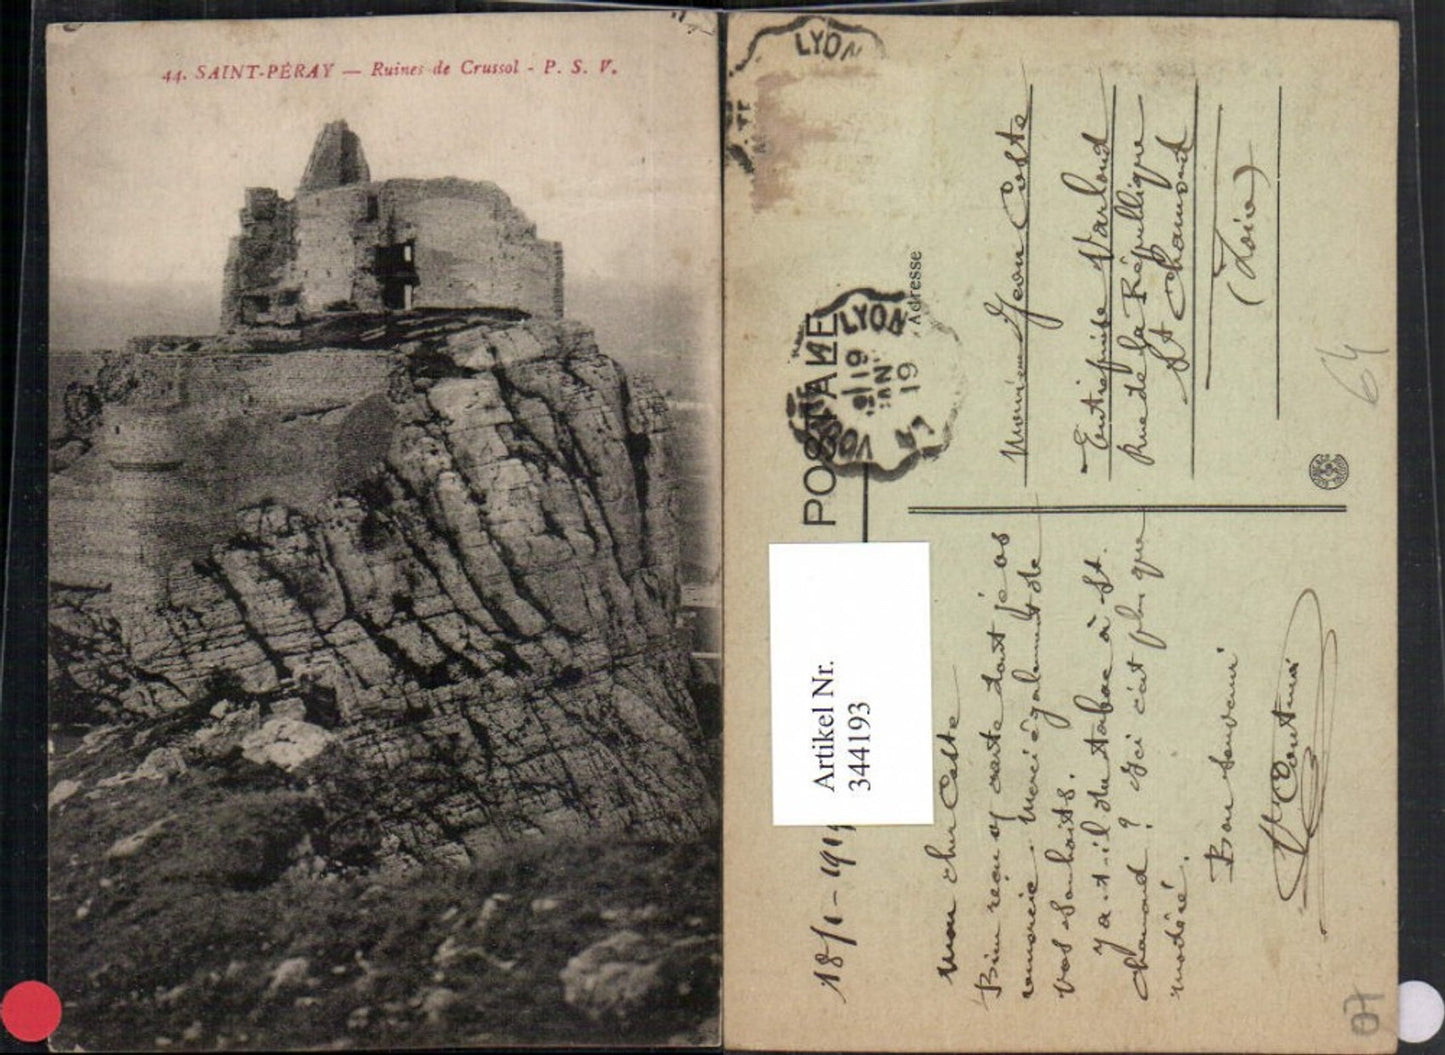 44. SAINT-PÉRAY — Ruines de Crussol - P. S. V.
LYON
POSTALE
LYON
19
19
Adresse
Artikel Nr.
344193
18/1-191
Mon cher Coste
Bien reçu ta carte dont je
remercie. Merci également de
vos souhaits.
Y a-t-il du tabac à St.
Chamond ? Ici c'est plus que
modéré.
Bon souvenir
Monsieur Jean Coste
Entreprise
Rue de la République
St Chamond
(Loire)
64
07